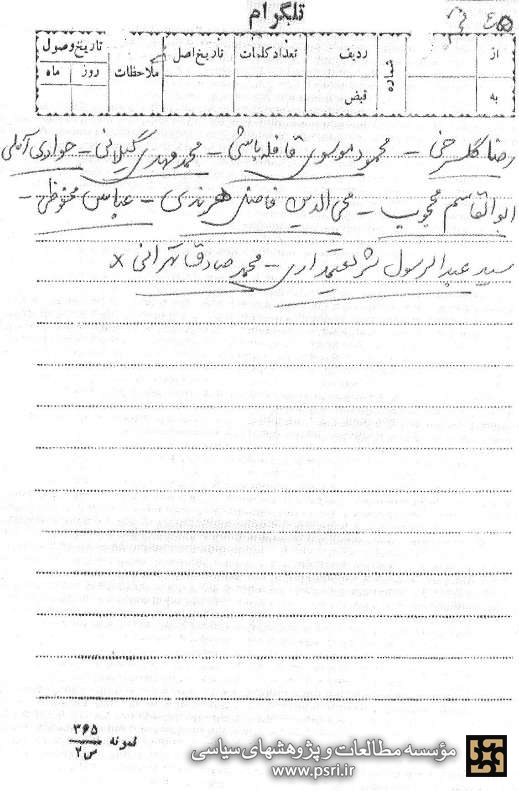 تلگرام
از
به
شماره
ردیف
قبض
تعداد کلمات
تاریخ اصل
ملاحظات
تاریخ وصول
روز
ماه
رضا گلسرخی - محمود موسوی قافله‌باشی - محمد مهدی گیلانی - جوادی آملی
ابوالقاسم محجوب - محی الدین فاضل هرندی - عباس محفوظی -
سید عبدالرسول شریعتمداری - محمد صادق تهرانی x
نمونه ۳۶۵
س۲
مؤسسه مطالعات و پژوهشهای سیاسی
www.psri.ir